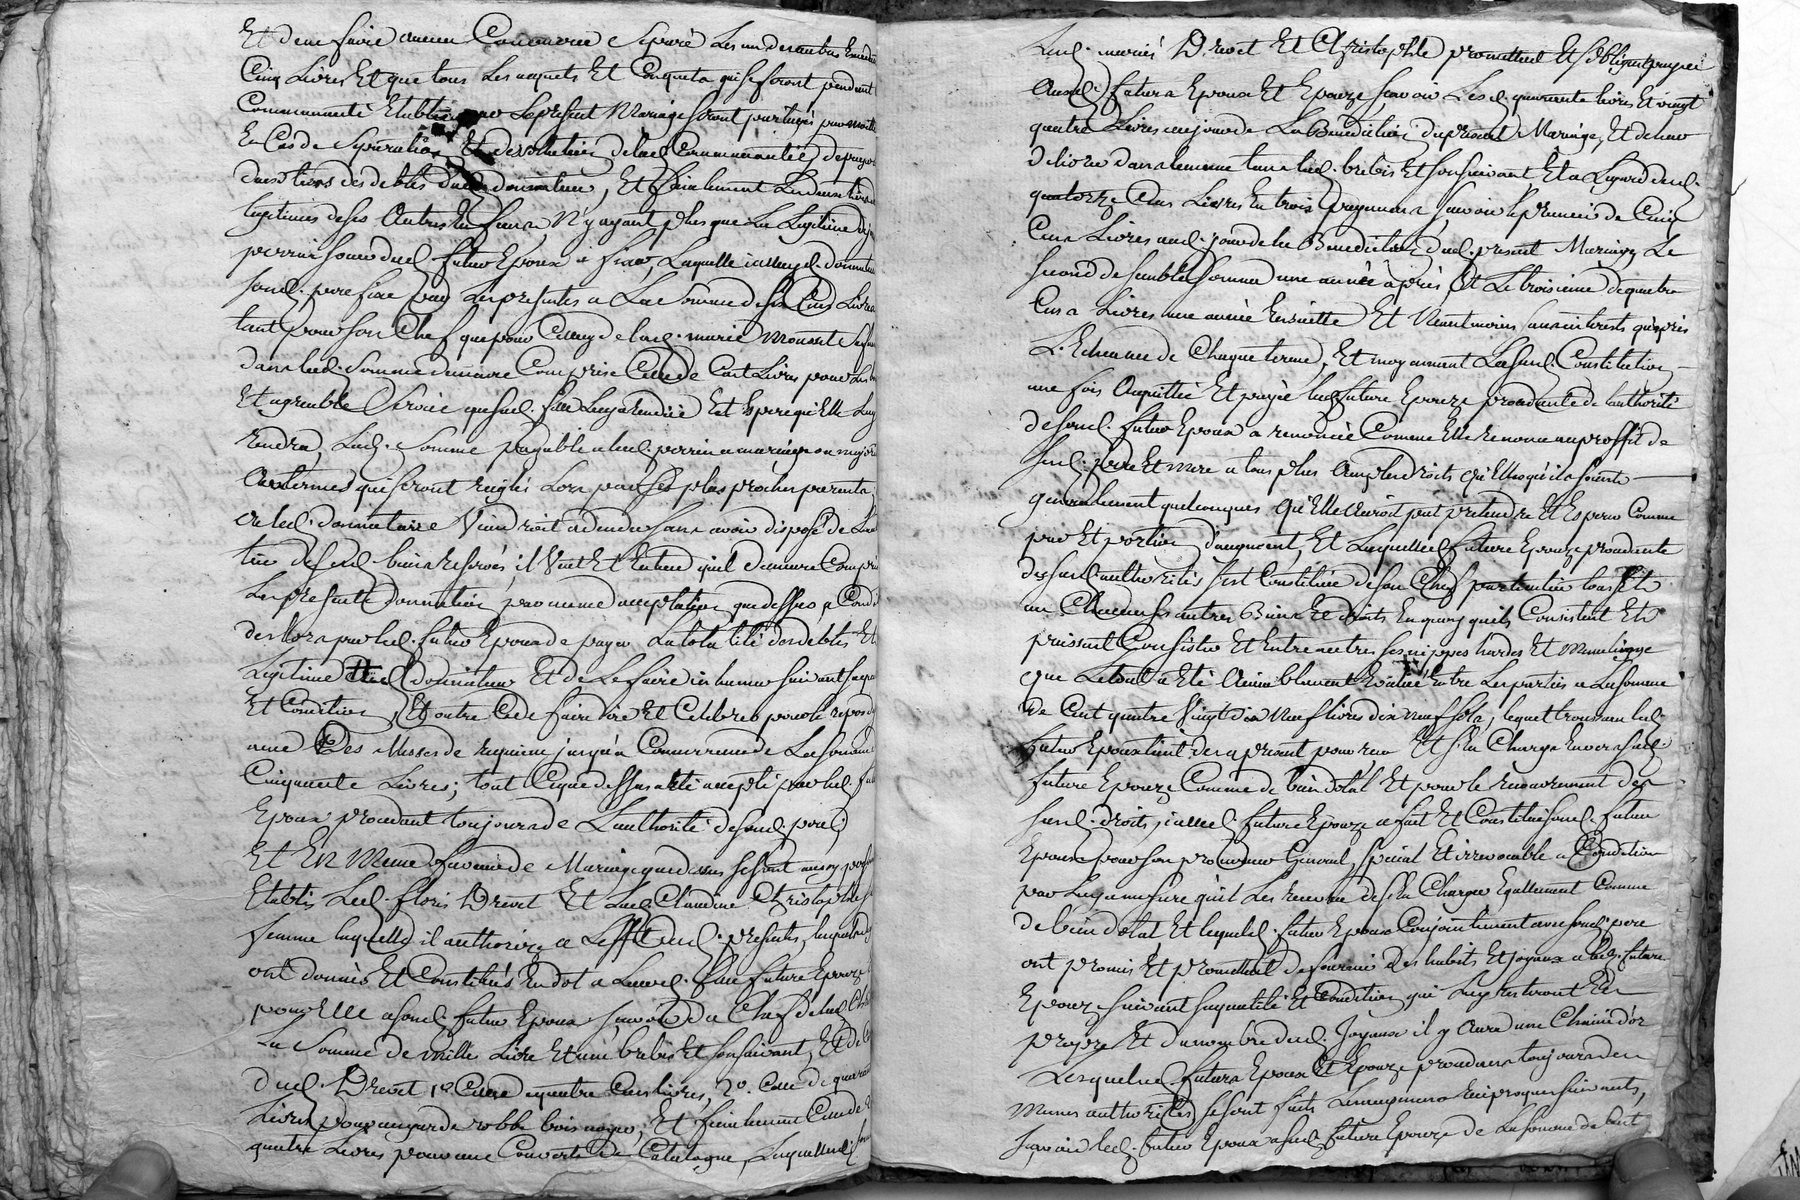 Et den faire aucun Commerce Separé Les un des autres
Cinq Livres Et que tous Les acquets Et Conquets qui se feront pendant
Communauté Etablie par Le present Mariage seront partagés par moitié
En Cas de Separation Et dissolution de lad Communauté
des tiers des debtes dud donnateur, Et finalement
legitimes de ses Autres Enfans N'y ayant plus que La Legitime
perrin dud. futur Epoux a fixer, Laquelle led. donnateur
fond. pere fixe par Les presentes a La Somme de six Cens Livres
tant pour son Chef que pour Celluy de lad. marie
dans lad. Somme demeure Comprise Celle de Cent Livres pour Les
Et agreable Service que lad. fille Luy a rendüe Et Espere qu'Elle Luy
rendra, Lad. Somme payable aud. perrin a mariage ou majorité
Aux termes qui seront reiglés Lors par Ses plus proches parents,
Ou led. donnataire Viendroit a deceder sans avoir disposé de
desd. biens reservés, il Veut Et Entend quil demeure Compris
La presente donnation par meme acceptation que dessus, a
des Lors par led. futur Epoux de payer La totalité des debtes Et
Legitime dud. donnateur Et de Le faire inhumer suivant sa qualité
Et Condition, Et outre Ce de faire dire Et Celebrer pour le repos de
ame Des Messes de requiem jusqu'a Concurrence de La Somme
Cinquante Livres; tout Ce que dessus a Eté accepté par led. futur
Epoux procedant toujours de L'authorité de sond. pere;
Et En Meme faveur de Mariage que dessus se sont aussy
Etablis Led. floris Drevet Et Lad. Claudine Christophle
femme laquelle il authorise a L'Effet des presentes, lesquels
ont donnés Et Constitués En dot a Lad. fille future Epouze
pour Elle a sond. futur Epoux sçavoir du Chef de lad.
La Somme de mille Livre Et une brebis Et son suivant, Et de
dud. Drevet 1° Celle de quatre Cens livres, 2°. Celle de quarante
Livres pour une garde robbe bois noyer, Et finalement Celle de
quatre Livres pour une Couverte de Catalogne, Laquelle
Lesd. mariés Drevet Et Christophle promettent Et s'obligent payer
Auxd. futurs Epoux Et Epouze sçavoir Lesd. quarante livres Et vingt
quatre Livres au jour de La Benediction du present Mariage, Et de leur
delivrer dans le meme tems lad. brebis Et son suivant Et a L'egard desd.
quatorze Cens Livres En trois payements, sçavoir le premier de Cinq
Cens Livres aud. jour de la Benediction dud. present Mariage, Le
second de semblable somme une année après, Et Le troisieme de quatre
Cens Livres une année Ensuitte Et Neantmoins sans interests qu'après
L'Echeance de Chaque terme, Et moyennant Lad. Constitution
une fois Acquittée Et payée lad. future Epouze procedante de l'authorité
de sond. futur Epoux a renoncée Comme Elle renonce au proffit de
sesd. pere Et mere a tous plus Amples droits
generallement quelconques Qu'Elle auroit peut pretendre Et Esperer Comme
par Et portion d'augment, Et Laquelle future Epouze procedante
desd. authorités s'est Constituée de son Chef particulier tous Et
un Chacuns ses autres Biens Et droits En quoy quils Consistent Et
puissent Consister Et Entre autres ses nippes hardes Et Menulinge
que Le tout a Eté Aimablement Evalué Entre Les parties a La somme
de Cent quatre Vingt dix Neuf livres dix neuf sols, lequel trousseau led.
futur Epoux tient des a present pour reçu Et s'En Charge Envers sad.
future Epouze Comme de bien dotal Et pour le recouvrement des
sesd. droits, icelle future Epouze a fait Et Constitué sond. futur
Epoux pour son procureur General, special Et irrevocable a Condition
par Luy a mesure qu'il Les recevra de s'En Charger Egallement Comme
de bien dotal Et lequel futur Epoux Conjointement avec sond. pere
ont promis Et promettent de fournir Des habits Et joyaux a lad. future
Epouze suivant sa qualité Et Condition, qui Luy resteront En
propre Et du nombre desd. Joyaux il y Aura une Chaine d'or
Lesquels futurs Epoux Et Epouze procedans toujours des
memes authorités se sont faits Les augmens reciproques suivants,
sçavoir led. futur Epoux a sad. future Epouze de La somme de Cent